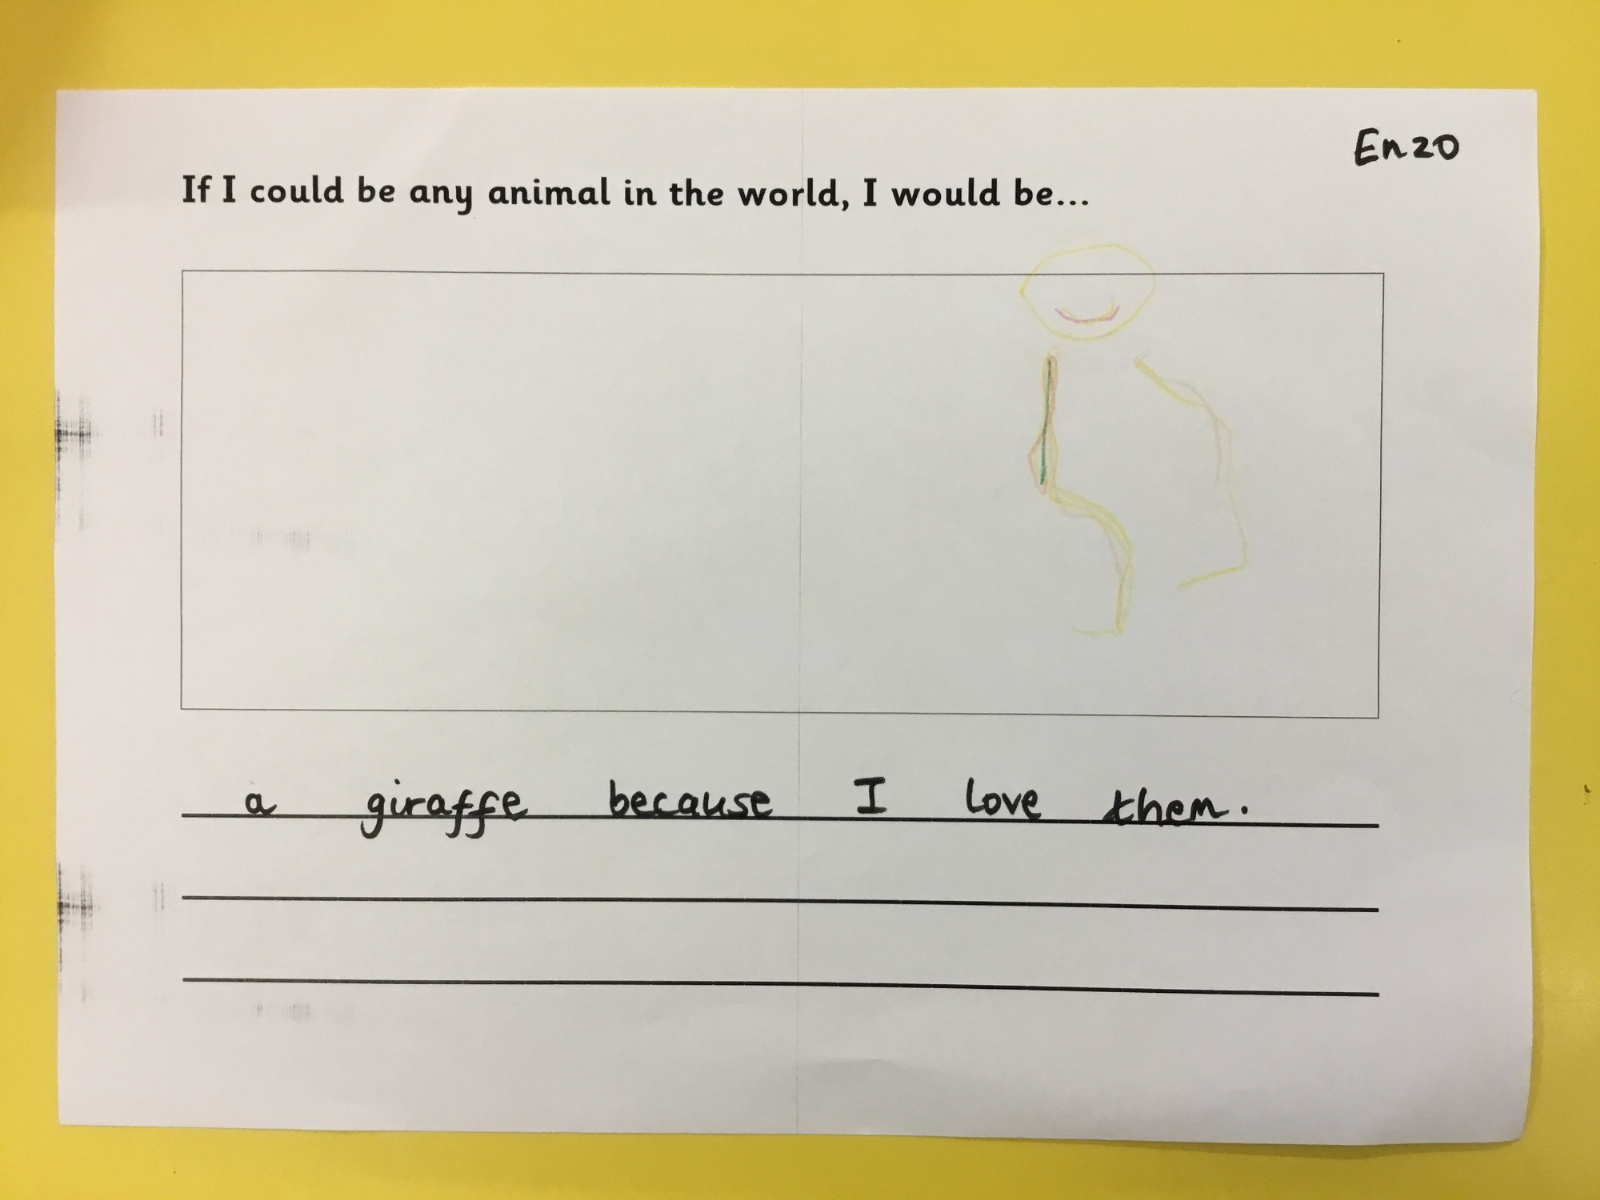 Enzo
If I could be any animal in the world, I would be...
a giraffe because I love them.